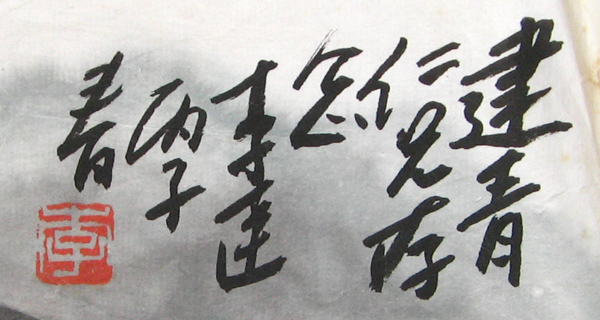 建青
仁兄存
念
李達
丙子
春
李